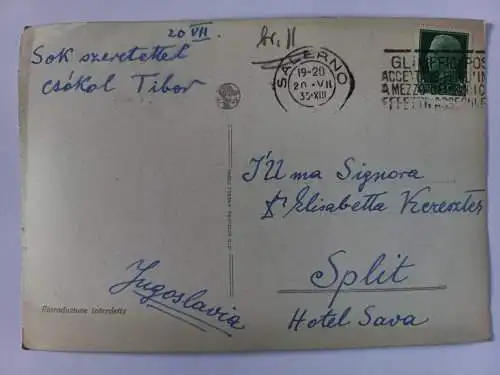 20 VII.
Sok szeretettel
csókol Tibor
SALERNO
19-20
20·VII
35·XIII
GLI UFFICI POS
ACCETTANO
A MEZZO
EFFETTI
I'll ma Signora
Dr Elisabetta Kereszter
Split
Hotel Sava
Jugoslavia
Riproduzione interdetta